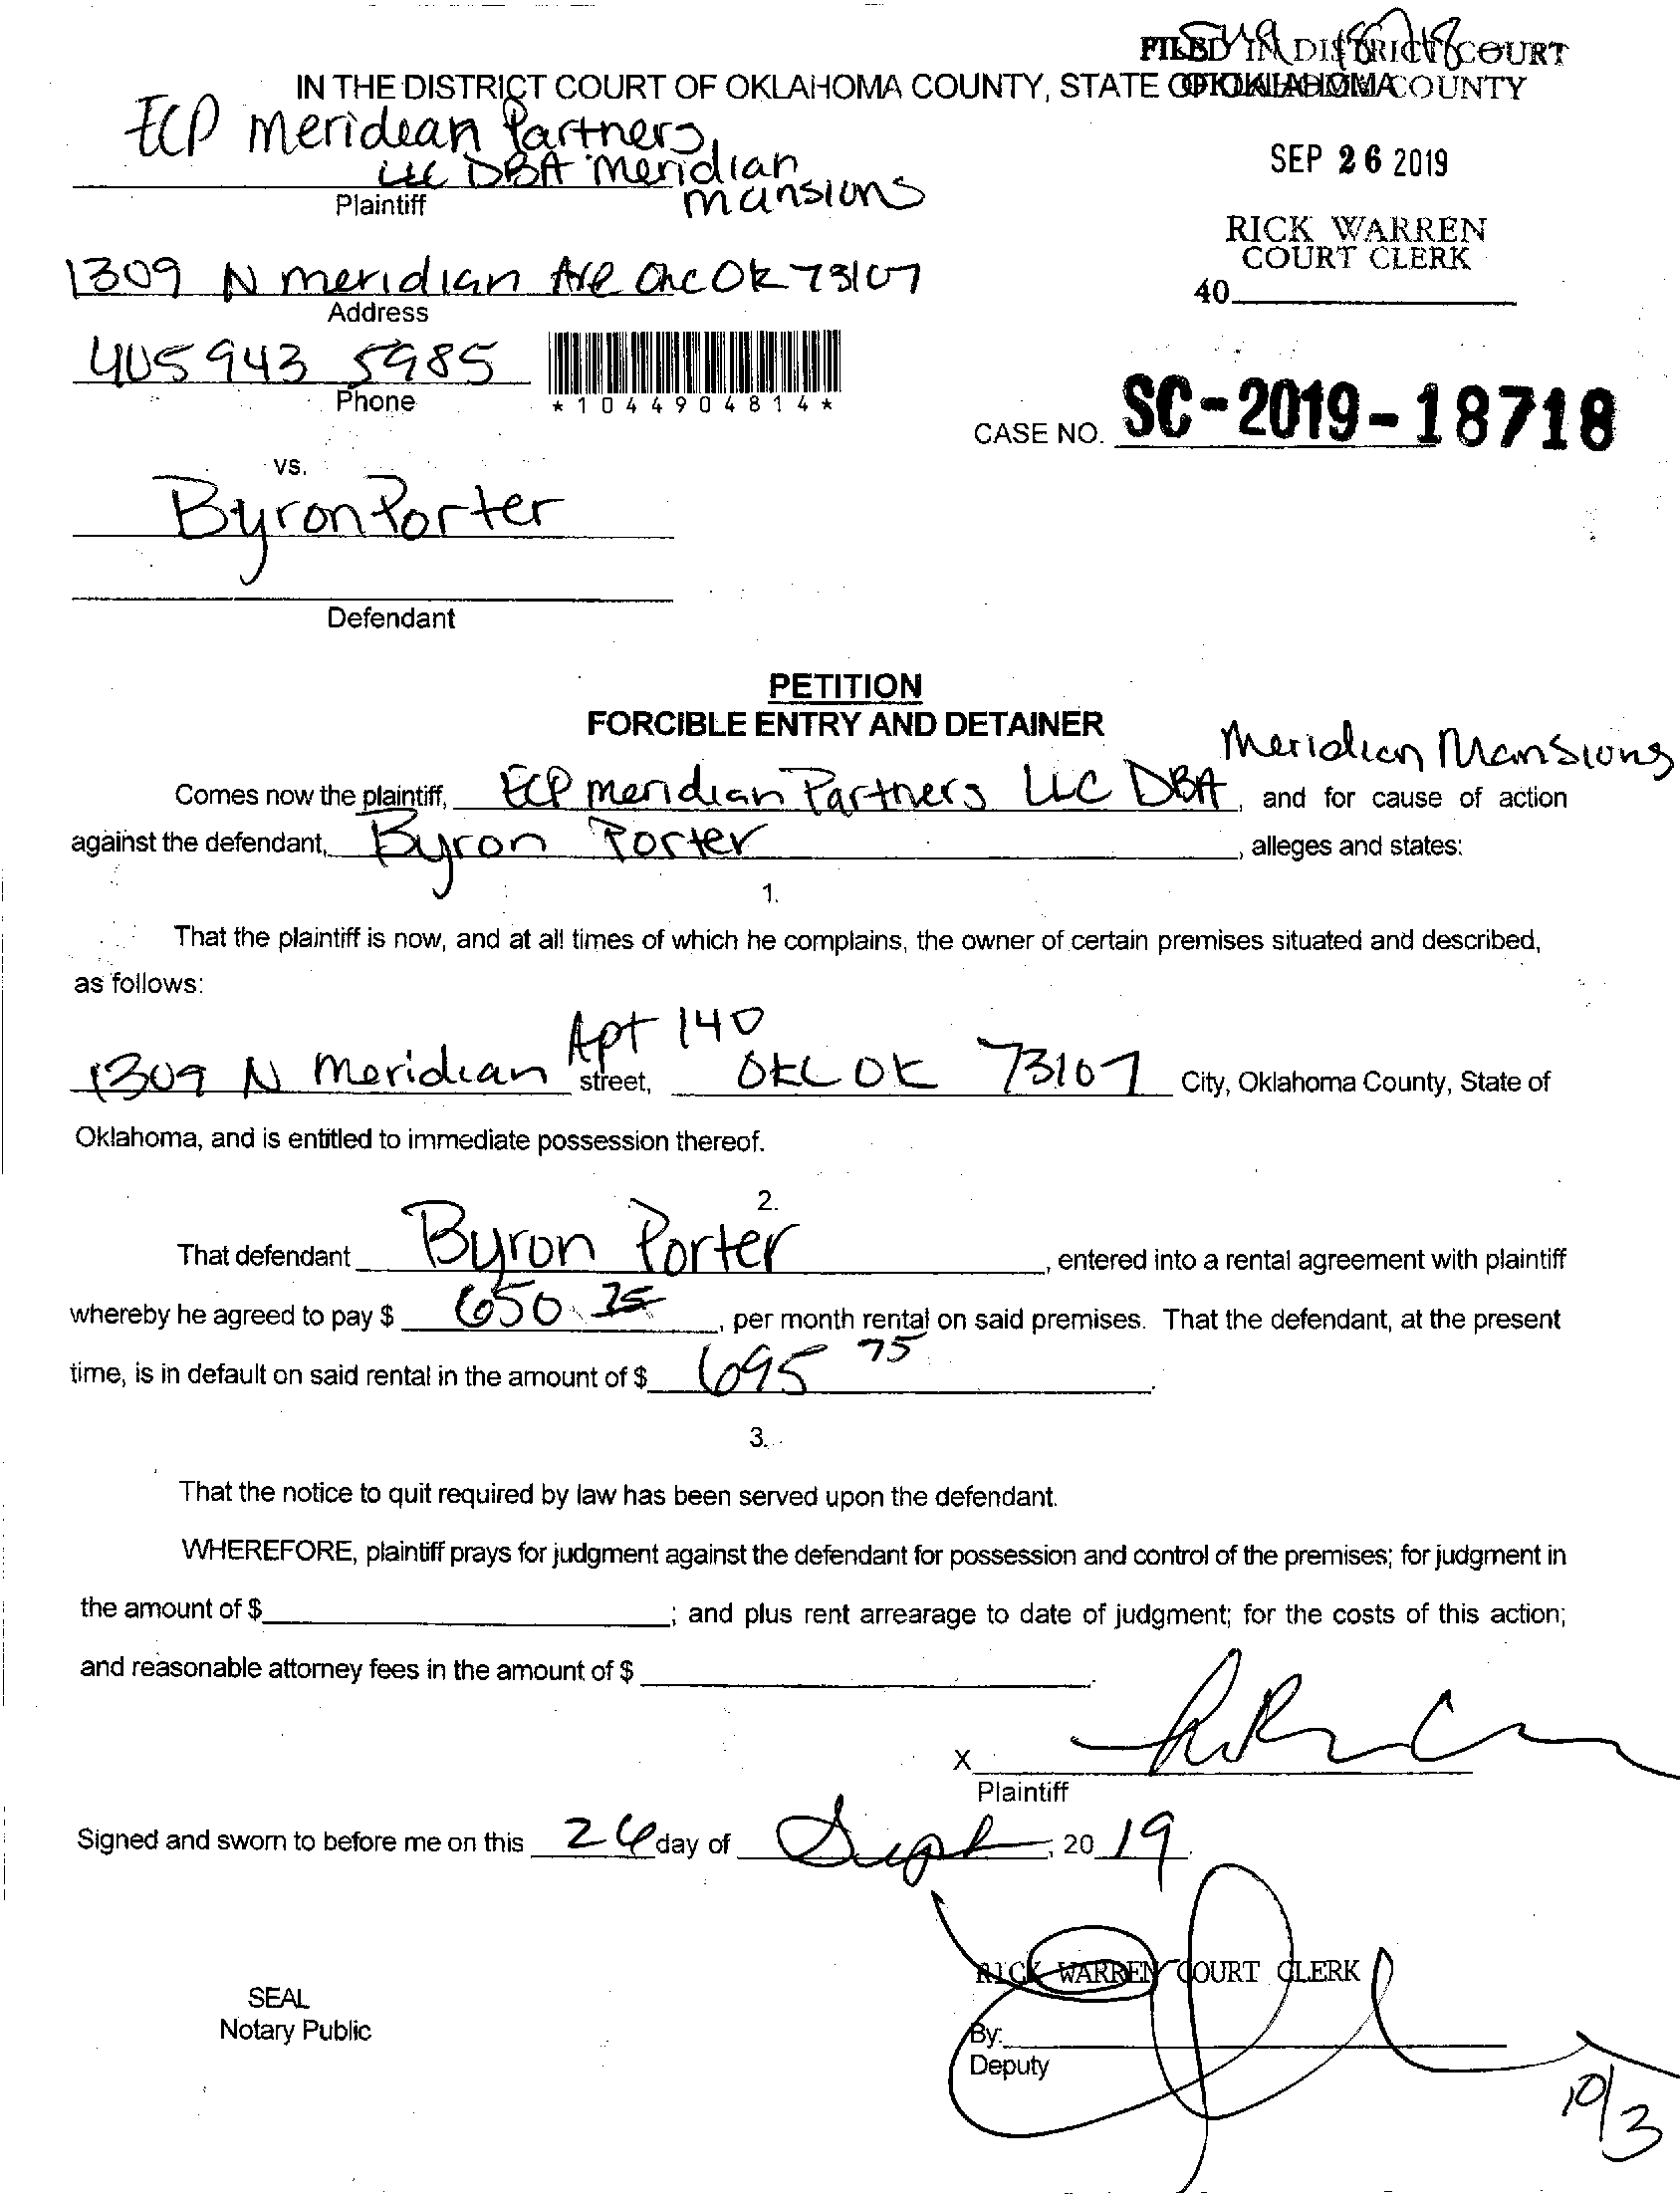 FILED IN DISTRICT COURT
IN THE DISTRICT COURT OF OKLAHOMA COUNTY, STATE OF OKLAHOMA
OKLAHOMA COUNTY
ECP Meridean Partners
LLC DBA Meridian
Mansions
Plaintiff
SEP 26 2019
RICK WARREN
COURT CLERK
40
1309 N Meridian Ave OKC OK 73107
Address
405 943 5985
Phone
*1044904814*
CASE NO. SC-2019-18718
vs.
Byron Porter
Defendant
PETITION
FORCIBLE ENTRY AND DETAINER
Meridian Mansions
Comes now the plaintiff, ECP Meridian Partners LLC DBA, and for cause of action
against the defendant, Byron Porter, alleges and states:
1.
That the plaintiff is now, and at all times of which he complains, the owner of certain premises situated and described,
as follows:
Apt 140
1309 N Meridian street, OKC OK 73107 City, Oklahoma County, State of
Oklahoma, and is entitled to immediate possession thereof.
2.
That defendant Byron Porter, entered into a rental agreement with plaintiff
whereby he agreed to pay $ 650.75, per month rental on said premises. That the defendant, at the present
time, is in default on said rental in the amount of $ 695 75.
3.
That the notice to quit required by law has been served upon the defendant.
WHEREFORE, plaintiff prays for judgment against the defendant for possession and control of the premises; for judgment in
the amount of $; and plus rent arrearage to date of judgment; for the costs of this action;
and reasonable attorney fees in the amount of $.
X
Plaintiff
Signed and sworn to before me on this 26 day of Sept, 20 19.
RICK WARREN COURT CLERK
SEAL
Notary Public
By:
Deputy
10/3